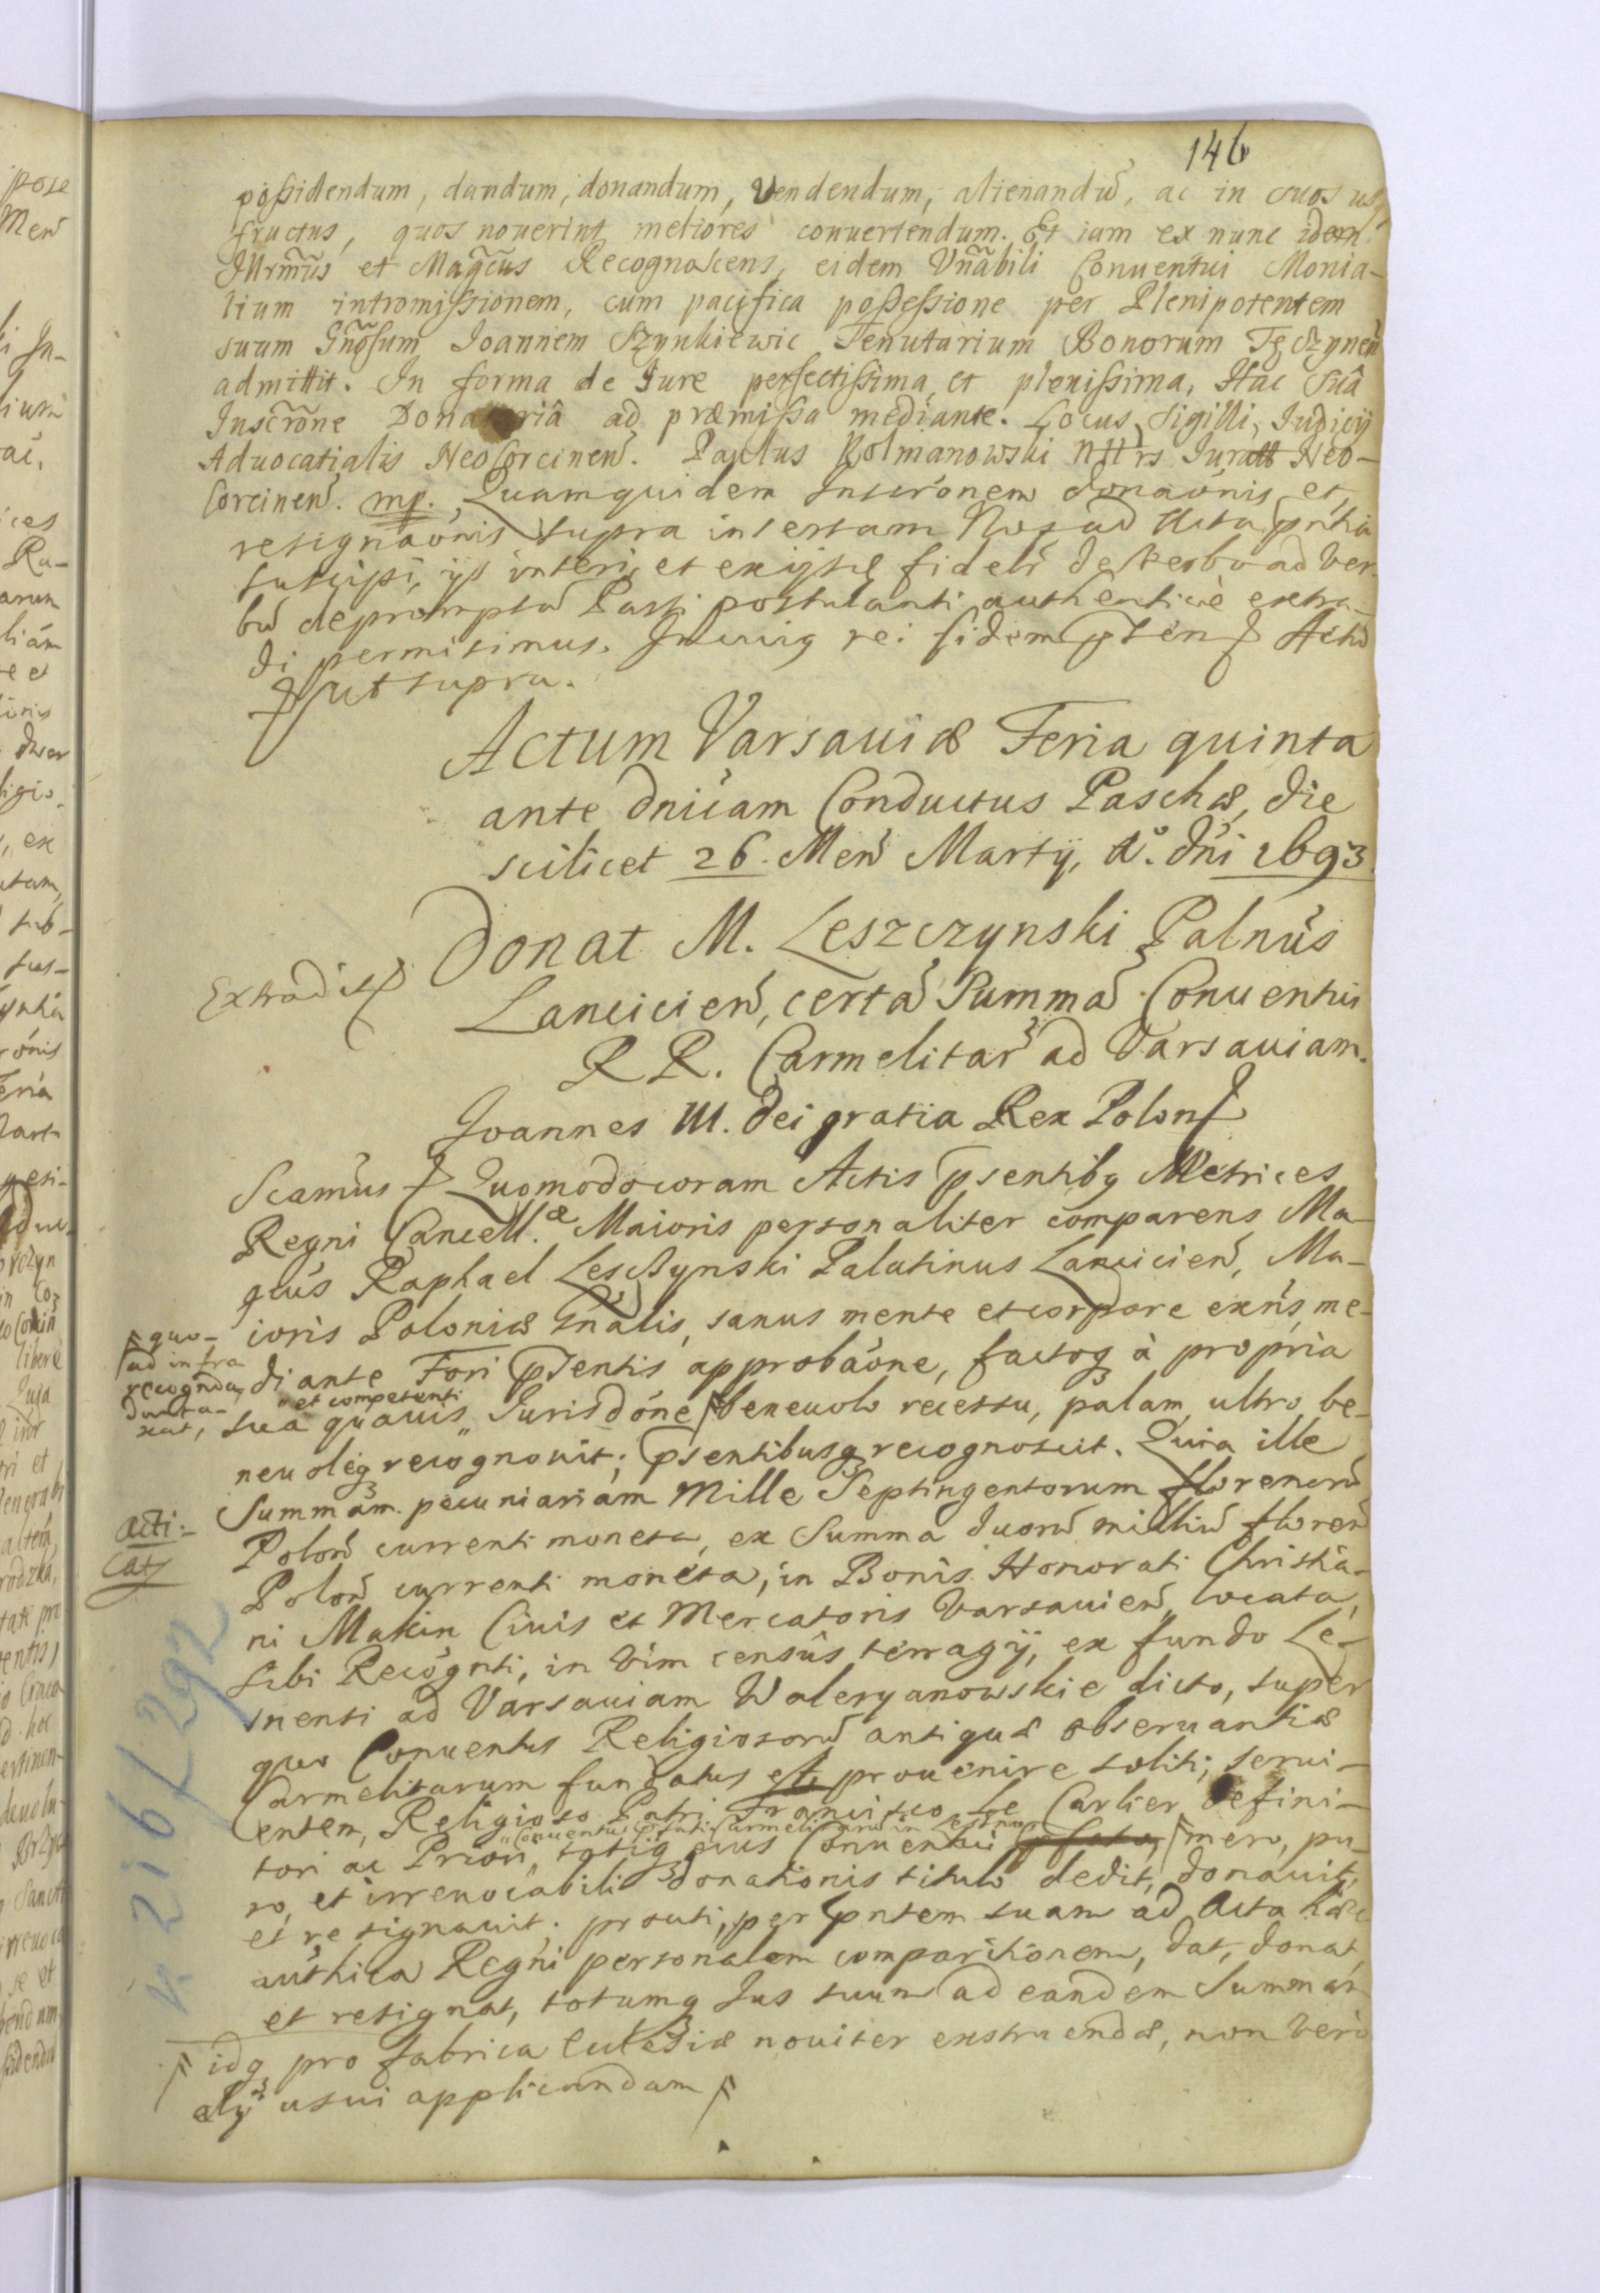 146
possidendum, dandum, donandum, vendendum, alienandũ, ac in suos us,
fructus, quos noverint meliores convertendum. Et iam ex nunc idem
Illrmũs et Magcũs Recognoscens, eidem Vñabili Conventui Monia-
lium intromissionem, cum pacifica possessione per Plenipotentem
suum Gñosum Ioannem Szynkiewic Tenutarium Bonorum Tęczyneñ
admittit. In forma de Iure perfectissima et plenissima, Hac suâ
Inscrõne Donatoriâ ad præmissa mediante. Locus Sigilli, Iudicij
Advocatialis NeoCorcineñ. Paulus Rolmanowski Nttrs Iuratt Neo-
Corcineñ. mp. Quamquidem Inscrõnem donaõnis et
resignaõnis supra insertam Nos ad Acta pñtia
suscipi, ijs inseri, et exijsde fideli de verbo ad ver
bũ depromptũ Parti postulanti authenticè extra-
di permisimus. In cuius rei fidem pñten Actũ
ut supra.
Actum Varsaviæ Feria quinta
ante dnicam Conductus Paschæ, die
scilicet 26. Meñ Martij, A°. Dni 1693
Extradit
Donat M. Leszczynski Palnus
Lancicieñ, certã Summã Conventui
RR. Carmelitar ad Varsaviam.
Joannes III. Dei gratia Rex Polon
Scamus Quomodo coram Actis psentibq Metrices
Regni Cancell.æ Maioris personaliter comparens Ma-
gcus Raphael Leszczynski Palatinus Lancicieñ, Ma-
ioris Poloniæ Gnalis, sanus mente et corpore exñs, me-
quo-
ad infra
recognda
dunta-
xat,
diante Fori psentis approbaõne, factoq à propria
et competenti
sua quavis Iurisdõne benevolo recessu, palam ultro be-
nevoleq recognovit; psentibusq recognoscit. Quia ille
Summam pecuniariam Mille Septingentorum florenorũ
acti-
cat
Poloñ currenti moneta, ex Summa duorũ milliũ floreñ
Poloñ currenti moneta, in Bonis Honorati Christia-
ni Makin Civis et Mercatoris Varsavieñ locata,
sibi Recognti, in vim censûs terragij, ex fundo Le-
snensi ad Varsaviam Waleryanowskie dicto, super
quo Conventus Religiosorũ antiquæ observantiæ
Carmelitarum fundatus est, provenire soliti, servi-
entem, Religioso Patri Francisco Le Carlier Defini-
Conventus
tori ac Priori, totiq eius Conventui mero, pu-
ro, et irrevocabili donationis titulo dedit, donavit,
et resignavit; prouti, per pntem suam ad Acta hæc
authica Regni personalem comparitionem, dat, donat,
et resignat, totumq Ius suum ad eandem Summam
idq pro fabrica Ecclesiæ noviter exstruendæ, non verò
alij usui applicandam
N. 216/292